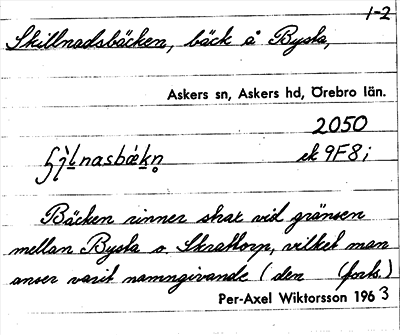 1-2
Skillnadsbäcken, bäck å Bysta,
Askers sn, Askers hd, Örebro län.
2050
ʃì̀l̠nasbǽk̠n̥ ek 9F8i
Bäcken rinner strax vid gränsen
mellan Bysta o. Skrattorp, vilket man
anser varit namngivande (den (forts.)
Per-Axel Wiktorsson 1963